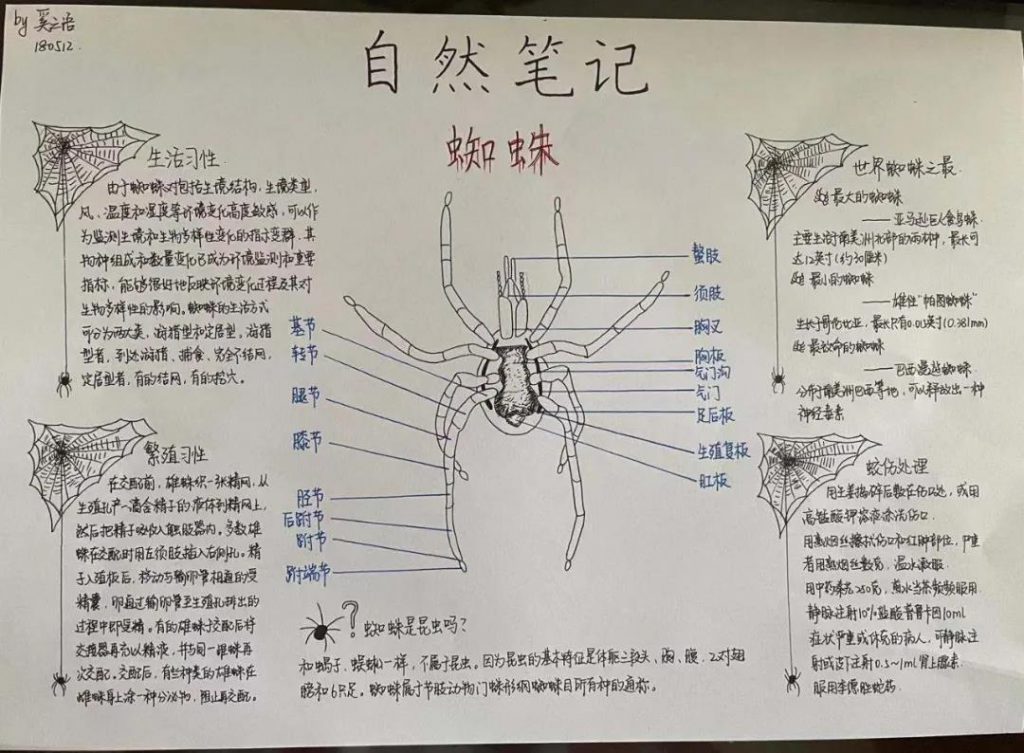 by 奚之语
180512.
自然笔记
蜘蛛
生活习性
由于蜘蛛对包括生境结构,生境类型,
风、温度和湿度等环境变化高度敏感,可以作
为监测生境和生物多样性变化的指示类群。其
物种组成和数量变化已成为环境监测和重要
指标,能够很好地反映环境变化过程及其对
生物多样性的影响。蜘蛛的生活方式
可分为两大类,游猎型和定居型,游猎
型者,到处游猎、捕食、完全不结网,
定居型者,有的结网,有的挖穴。
繁殖习性
在交配前,雄蛛织一张精网,从
生殖孔产一滴含精子的液体到精网上,
然后把精子吸入触肢器内。多数雄
蛛在交配时用左须肢插入右侧孔。精
子入殖板后,移动与输卵管相通的受
精囊,卵通过输卵管至生殖孔排出的
过程中即受精。有的雄蛛于交配后将
交接器再充以精液,并与同一雌蛛再
次交配。交配后,有些种类的雄蛛在
雌蛛身上涂一种分泌物,阻止再交配。
基节
转节
腿节
膝节
胫节
后跗节
跗节
跗端节
螯肢
须肢
胸叉
胸板
气门沟
气门
足后板
生殖复板
肛板
蜘蛛是昆虫吗?
和蝎子、蜈蚣一样,不属于昆虫。因为昆虫的基本特征是体躯三段头、胸、腹,2对翅
膀和6只足。蜘蛛属于节肢动物门蛛形纲蜘蛛目所有种的通称。
世界蜘蛛之最
最大的蜘蛛
——亚马逊巨人食鸟蛛
主要生活于南美洲北部的雨林中,最长可
达12英寸(约30厘米)
最小的蜘蛛
——雄性“帕图蜘蛛”
生长于哥伦比亚,最长只有0.015英寸(0.381mm)
最致命的蜘蛛
——巴西漫游蜘蛛
分布于南美洲巴西等地,可以释放出一种
神经毒素
蛟伤处理
用生姜捣碎后敷在伤口处,或用
高锰酸钾溶液涂洗伤口
用熟烟丝擦抹伤口和红肿部位,严重
者用熟烟丝敷患,温水敷服
用中药 250克,煎水当茶频频服用
静脉注射10%盐酸普鲁卡因10ml
症状严重或体弱的病人,可静脉注
射或皮下注射0.5~1ml肾上腺素
服用季德胜蛇药